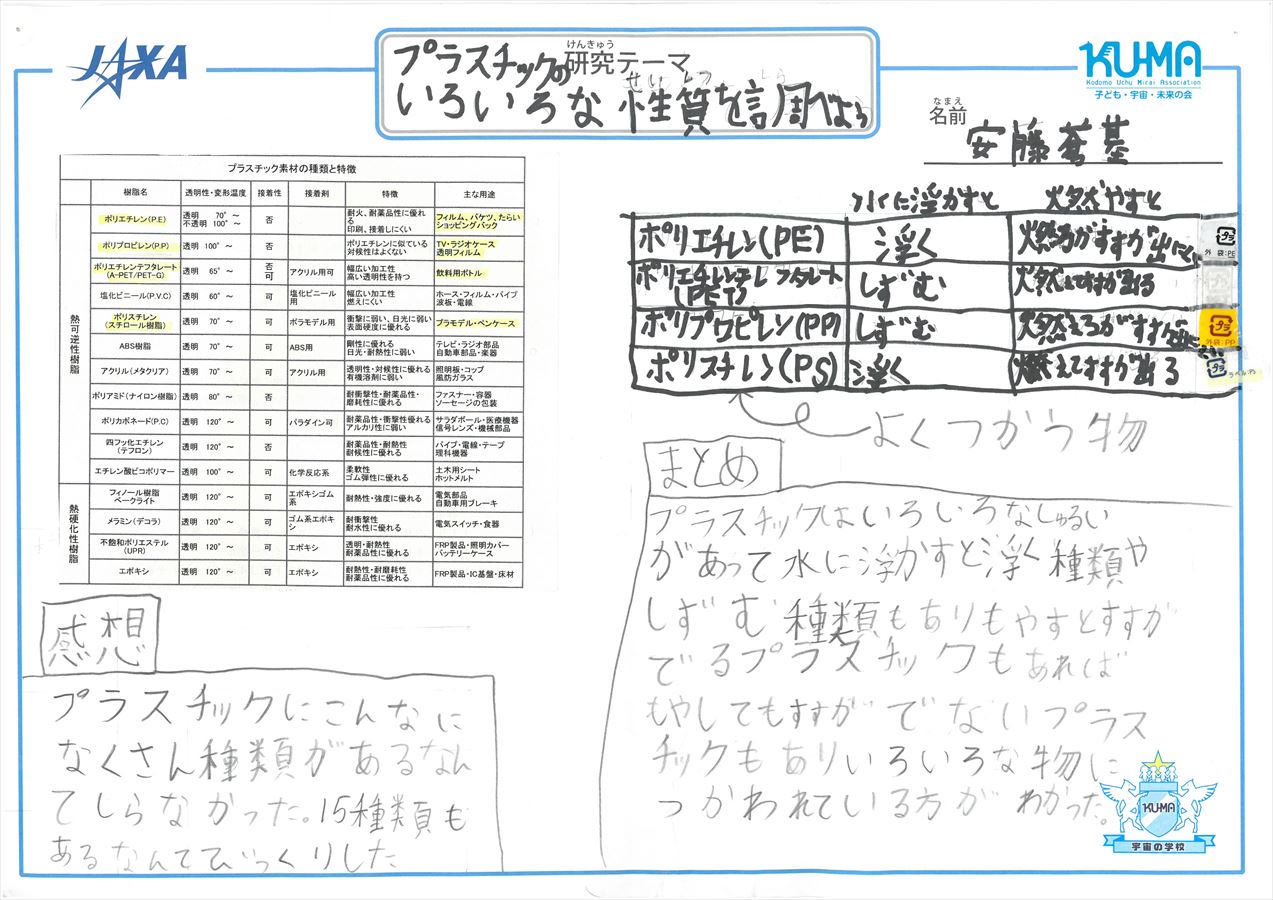 JAXA
けんきゅう
研究テーマ
プラスチックの
せいしつ しら
いろいろな性質を調べよう
KU-MA
Kodomo Uchu Mirai Association
子ども・宇宙・未来の会
なまえ
名前
安藤蒼基
プラスチック素材の種類と特徴
樹脂名 透明性・変形温度 接着性 接着剤 特徴 主な用途
熱可逆性樹脂
ポリエチレン(P.E) 透明 70°～ 不透明 100°～ 否 耐火、耐薬品性に優れる 印刷、接着しにくい フィルム、バケツ、たらい ショッピングバック
ポリプロピレン(P.P) 透明 100°～ 否 ポリエチレンに似ている 対候性はよくない TV・ラジオケース 透明フィルム
ポリエチレンテフタレート (A-PET/PET-G) 透明 65°～ 否 可 アクリル用可 幅広い加工性 高い透明性を持つ 飲料用ボトル
塩化ビニール(P.V.C) 透明 60°～ 可 塩化ビニール用 幅広い加工性 燃えにくい ホース・フィルム・パイプ 波板・電線
ポリスチレン (スチロール樹脂) 透明 70°～ 可 ポラモデル用 衝撃に弱い、日光に弱い 表面硬度に優れる プラモデル・ペンケース
ABS樹脂 透明 70°～ 可 ABS用 剛性に優れる 日光・耐熱性に弱い テレビ・ラジオ部品 自動車部品・楽器
アクリル(メタクリア) 透明 70°～ 可 アクリル用 透明性・対候性に優れる 有機溶剤に弱い 照明板・コップ 風防ガラス
ポリアミド(ナイロン樹脂) 透明 80°～ 否 耐衝撃性・耐薬品性・ 磨耗性に優れる ファスナー・容器 ソーセージの包装
ポリカポネード(P.C) 透明 120°～ 可 パラダイン可 耐薬品性・衝撃性優れる アルカリ性に弱い サラダボール・医療機器 信号レンズ・機械部品
四フッ化エチレン (テフロン) 透明 120°～ 否 耐薬品性・耐熱性 耐候性に優れる パイプ・電線・テープ 理科機器
エチレン酸ビコポリマー 透明 100°～ 可 化学反応系 柔軟性 ゴム弾性に優れる 土木用シート ホットメルト
熱硬化性樹脂
フィノール樹脂 ベークライト 透明 120°～ 可 エポキシゴム系 耐熱性・強度に優れる 電気部品 自動車用ブレーキ
メラミン(デコラ) 透明 120°～ 可 ゴム系エポキシ 耐衝撃性 耐水性に優れる 電気スイッチ・食器
不飽和ポリエステル (UPR) 透明 120°～ 可 エポキシ 透明・耐熱性 耐薬品性に優れる FRP製品・照明カバー バッテリーケース
エポキシ 透明 120°～ 可 エポキシ 耐熱性・耐磨耗性 耐薬品性に優れる FRP製品・IC基盤・床材
水に浮かすと 燃やすと
ポリエチレン(PE) 浮く 燃えるがすすが出にくい
ポリエチレンテレフタレート(PET) しずむ 燃えてすすが出る
ポリプロピレン(PP) しずむ 燃えるがすすが出にくい
ポリスチレン(PS) 浮く 燃えてすすが出る
プラ
外 袋:PE
プラ
外袋:PP
プラ
ラベル:PS
よくつかう物
まとめ
プラスチックはいろいろなしゅるい
があって水に浮かすと浮く種類や
しずむ種類もありもやすとすすが
でるプラスチックもあれば
もやしてもすすがでないプラス
チックもありいろいろな物に
つかわれている方がわかった。
感想
プラスチックにこんなに
たくさん種類があるなん
てしらなかった。15種類も
あるなんてびっくりした
KU-MA
宇宙の学校